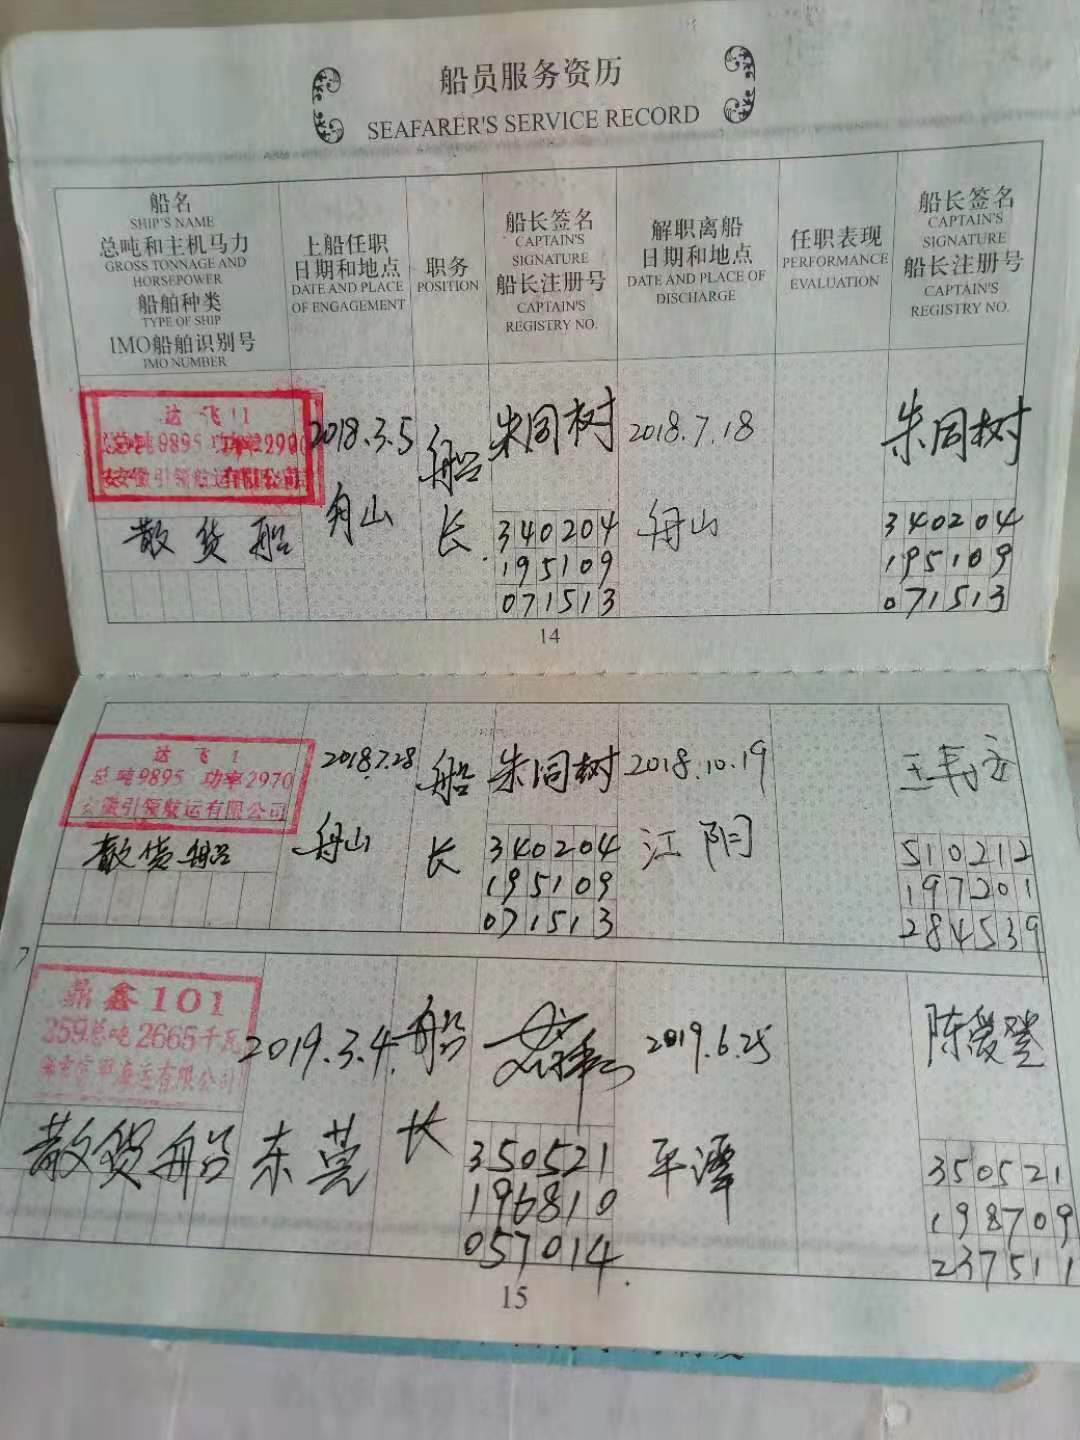 船员服务资历
SEAFARER'S SERVICE RECORD
船名
SHIP'S NAME
总吨和主机马力
GROSS TONNAGE AND
HORSEPOWER
船舶种类
TYPE OF SHIP
IMO船舶识别号
IMO NUMBER
上船任职
日期和地点
DATE AND PLACE
OF ENGAGEMENT
职务
POSITION
船长签名
CAPTAIN'S
SIGNATURE
船长注册号
CAPTAIN'S
REGISTRY NO.
解职离船
日期和地点
DATE AND PLACE OF
DISCHARGE
任职表现
PERFORMANCE
EVALUATION
船长签名
CAPTAIN'S
SIGNATURE
船长注册号
CAPTAIN'S
REGISTRY NO.
达飞1
总吨9895 功率2970
安徽引领航运有限公司
散货船
2018.3.5
舟山
船
长
朱同树
340204
195109
071513
2018.7.18
舟山
朱同树
340204
195109
071513
14
达飞1
总吨9895 功率2970
安徽引领航运有限公司
散货船
2018.7.28
舟山
船
长
朱同树
340204
195109
071513
2018.10.19
江阴
510212
197201
284539
鼎鑫101
259总吨2665千瓦
海运有限公司
散货船
2019.3.4
东莞
船
长
350521
196810
057014
2019.6.25
平潭
陈爱登
350521
198709
237511
15